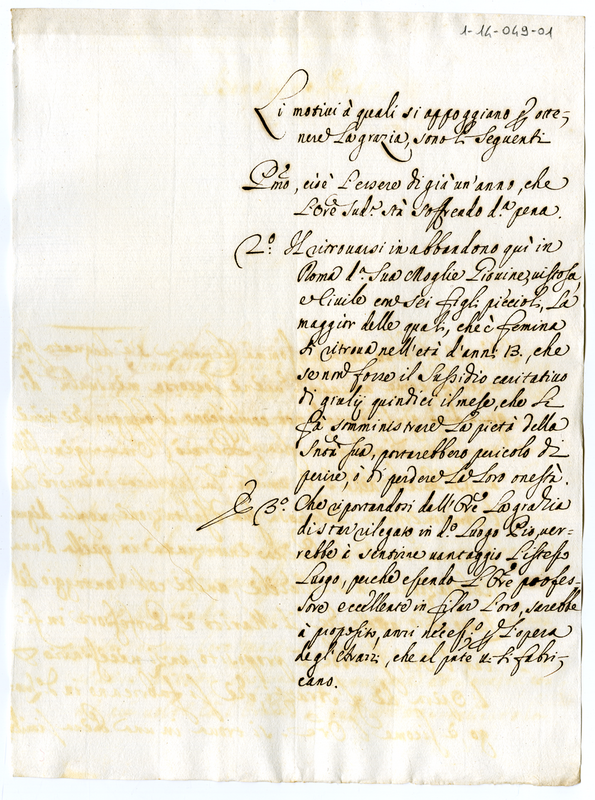 1-14-049-01
Li motivi à quali si appoggiano p otte,
nere La grazia, sono li seguenti
Pmo, cioè L'essere di già un'anno, che
L'Ore sud.º stà soffrendo d.ª pena.
2.º Il ritrovarsi in abbandono quì in
Roma d.ª Sua Moglie Giovine, vistosa,
e Civile con sei figli piccioli, La
maggior delle quali, che è femina
si ritrova nell'età d'anni 13., che
se non fosse il Sussidio caritativo
di giulij quindici il mese, che Li
fà somministrare La pietà della
Sntà sua, portarebbero pericolo di
perire, ò di perdere La Loro onestà.
3.º Che riportandosi dall'Ore La grazia
di star rilegato in d.º Luogo Pio, ver-
rebbe à sentirne vantaggio L'istesso
Luogo, perche essendo L'Ore profes-
sore eccellente in filar L'oro, sarebbe
à proposito, anzi necess.º p L'opera
degl'Arazzi, che al pnte vi si fabri,
cano.